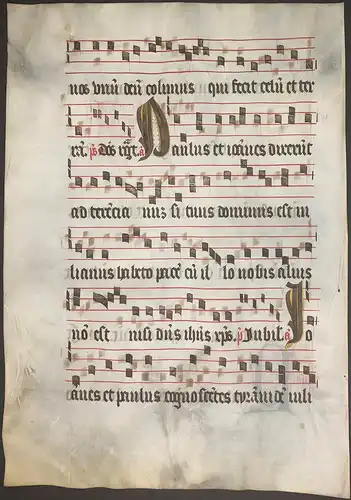 nos vnū deū colimus qui fecit celū et ter
rā. ps Dñs regt. a Paulus et ioānes dixerūt
ad terēcianū si tuus dominus est iu
lianus habeto pacē cū illo nobis alius
nō est nisi dñs ihūs xps. p Iubil. a Io
ānes et paulus cognoscētes tyrānidē iuli